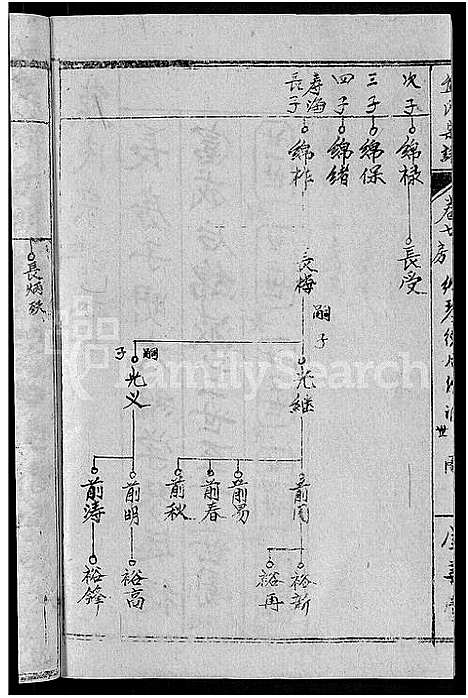 卷七
次子
綿禄
長受
三子
綿保
四子
綿绪
寿海
長子
綿祚
長梅
嗣子
光继
嗣子
光义
前周
前易
前春
前秋
前明
前涛
裕新
裕再
裕高
裕鋒
長炳
FamilySearch